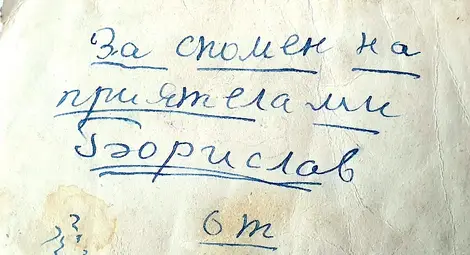 За спомен на
приятела ми
Борислав
6 т